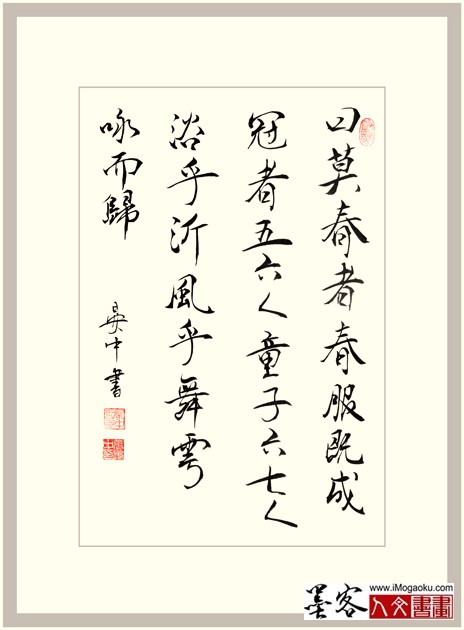 曰莫春者春服既成
冠者五六人童子六七人
浴乎沂風乎舞雩
咏而歸
中書
墨客
www.iMogaoku.com
人文書畫